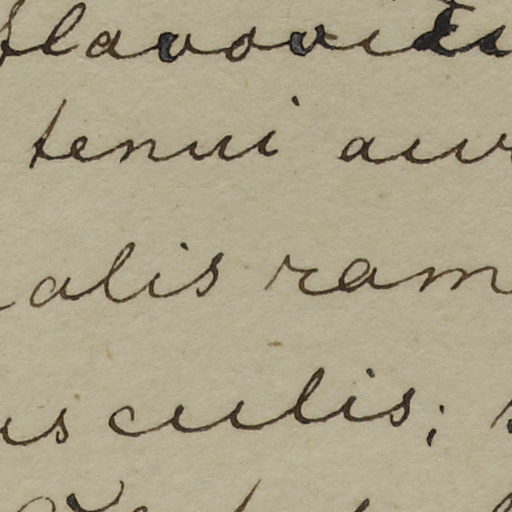 flavoviri
tenui aur
alis ram
usculis; s